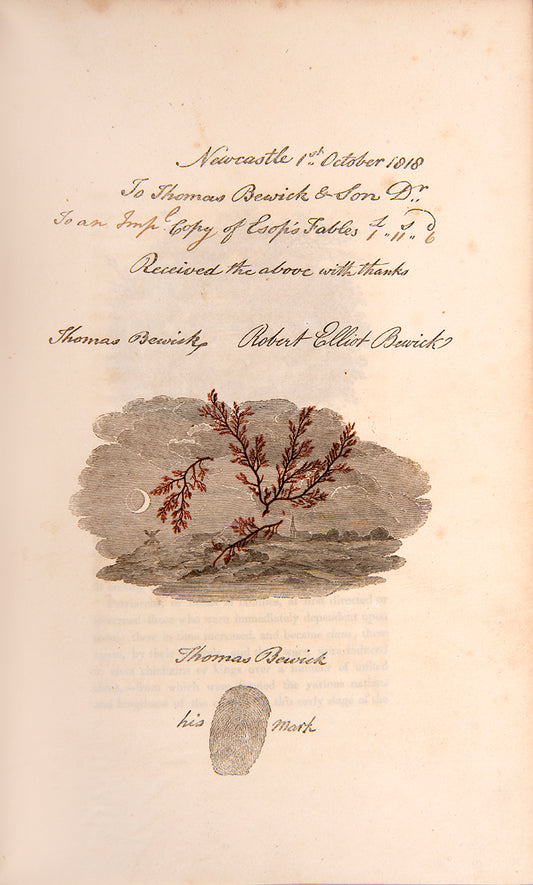 Newcastle 1st October 1818
To Thomas Bewick & Son Dr.
To an Impl. Copy of Esop's Fables £ 1 ,, s 11 ,, d 6
Received the above with thanks
Thomas Bewick Robert Elliot Bewick
were immediately dependent upon
Thomas Bewick
his mark